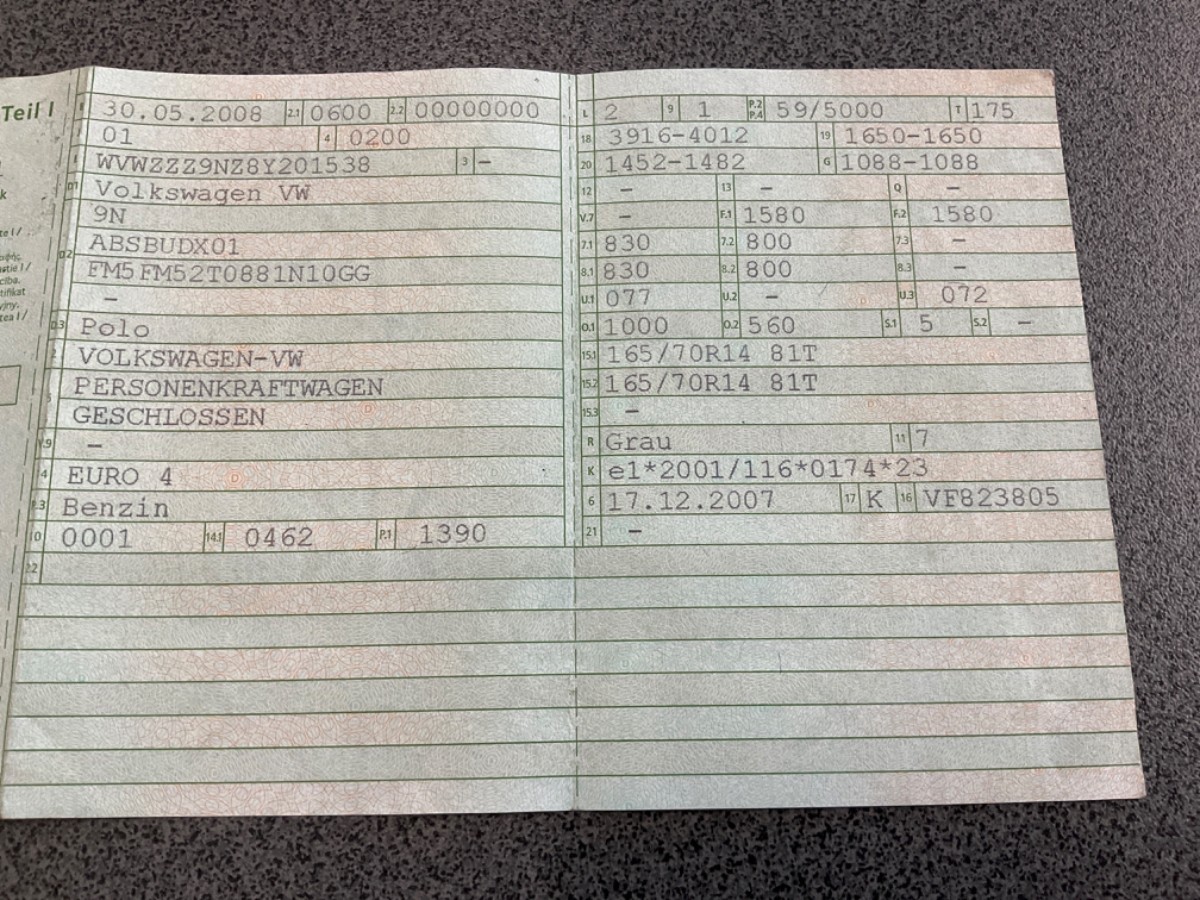 Teil I
30.05.2008 2.1 0600 2.2 00000000
01 4 0200
WVWZZZ9NZ8Y201538 3 –
D1 Volkswagen VW
9N
D2 ABSBUDX01
FM5FM52T0881N10GG
–
Polo
VOLKSWAGEN-VW
PERSONENKRAFTWAGEN
GESCHLOSSEN
–
EURO 4
Benzin
0001 14.1 0462 P.1 1390
L 2 9 1 P.2 P.4 59/5000 T 175
18 3916-4012 19 1650-1650
20 1452-1482 G 1088-1088
12 – 13 – Q –
V.7 – F.1 1580 F.2 1580
7.1 830 7.2 800 7.3 –
8.1 830 8.2 800 8.3 –
U.1 077 U.2 – U.3 072
O.1 1000 O.2 560 S.1 5 S.2 –
15.1 165/70R14 81T
15.2 165/70R14 81T
15.3 –
R Grau 11 7
K e1*2001/116*0174*23
6 17.12.2007 17 K 16 VF823805
21 –